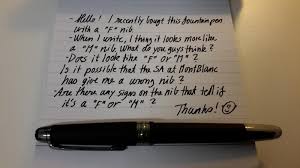 - Hello! I recently bought this fountain pen
with a "F" nib.
- When I write, I thing it looks more like
a "M" nib. What do you guys think?
- Does it look like "F" or "M"?
Is it possible that the SA at MontBlanc
has give me a wrong nib?
- Are there any signs on the nib that tell if
it's a "F" or "M"?
Thanks!